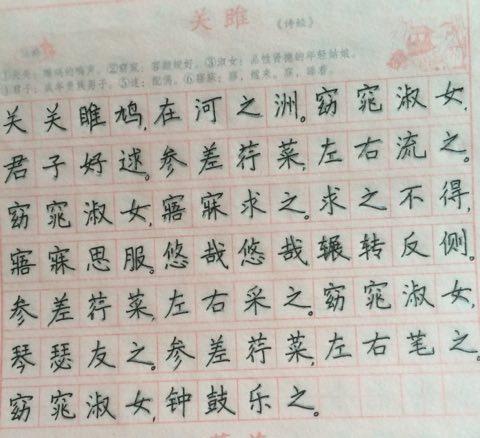 关雎 《诗经》
①关关：雎鸠的鸣声。②窈窕：容颜姣好。③淑女：品性贤德的年轻姑娘。
④君子：成年贵族男子。⑤逑：配偶。⑥寤寐：寤，醒来。寐，睡着。
关关雎鸠,在河之洲。窈窕淑女,
君子好逑。参差荇菜,左右流之。
窈窕淑女,寤寐求之。求之不得,
寤寐思服。悠哉悠哉辗转反侧。
参差荇菜,左右采之。窈窕淑女,
琴瑟友之。参差荇菜,左右芼之。
窈窕淑女,钟鼓乐之。